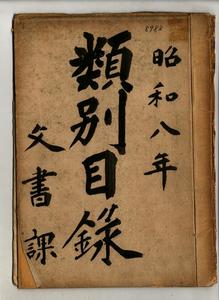 昭和八年
類別目録
文書課